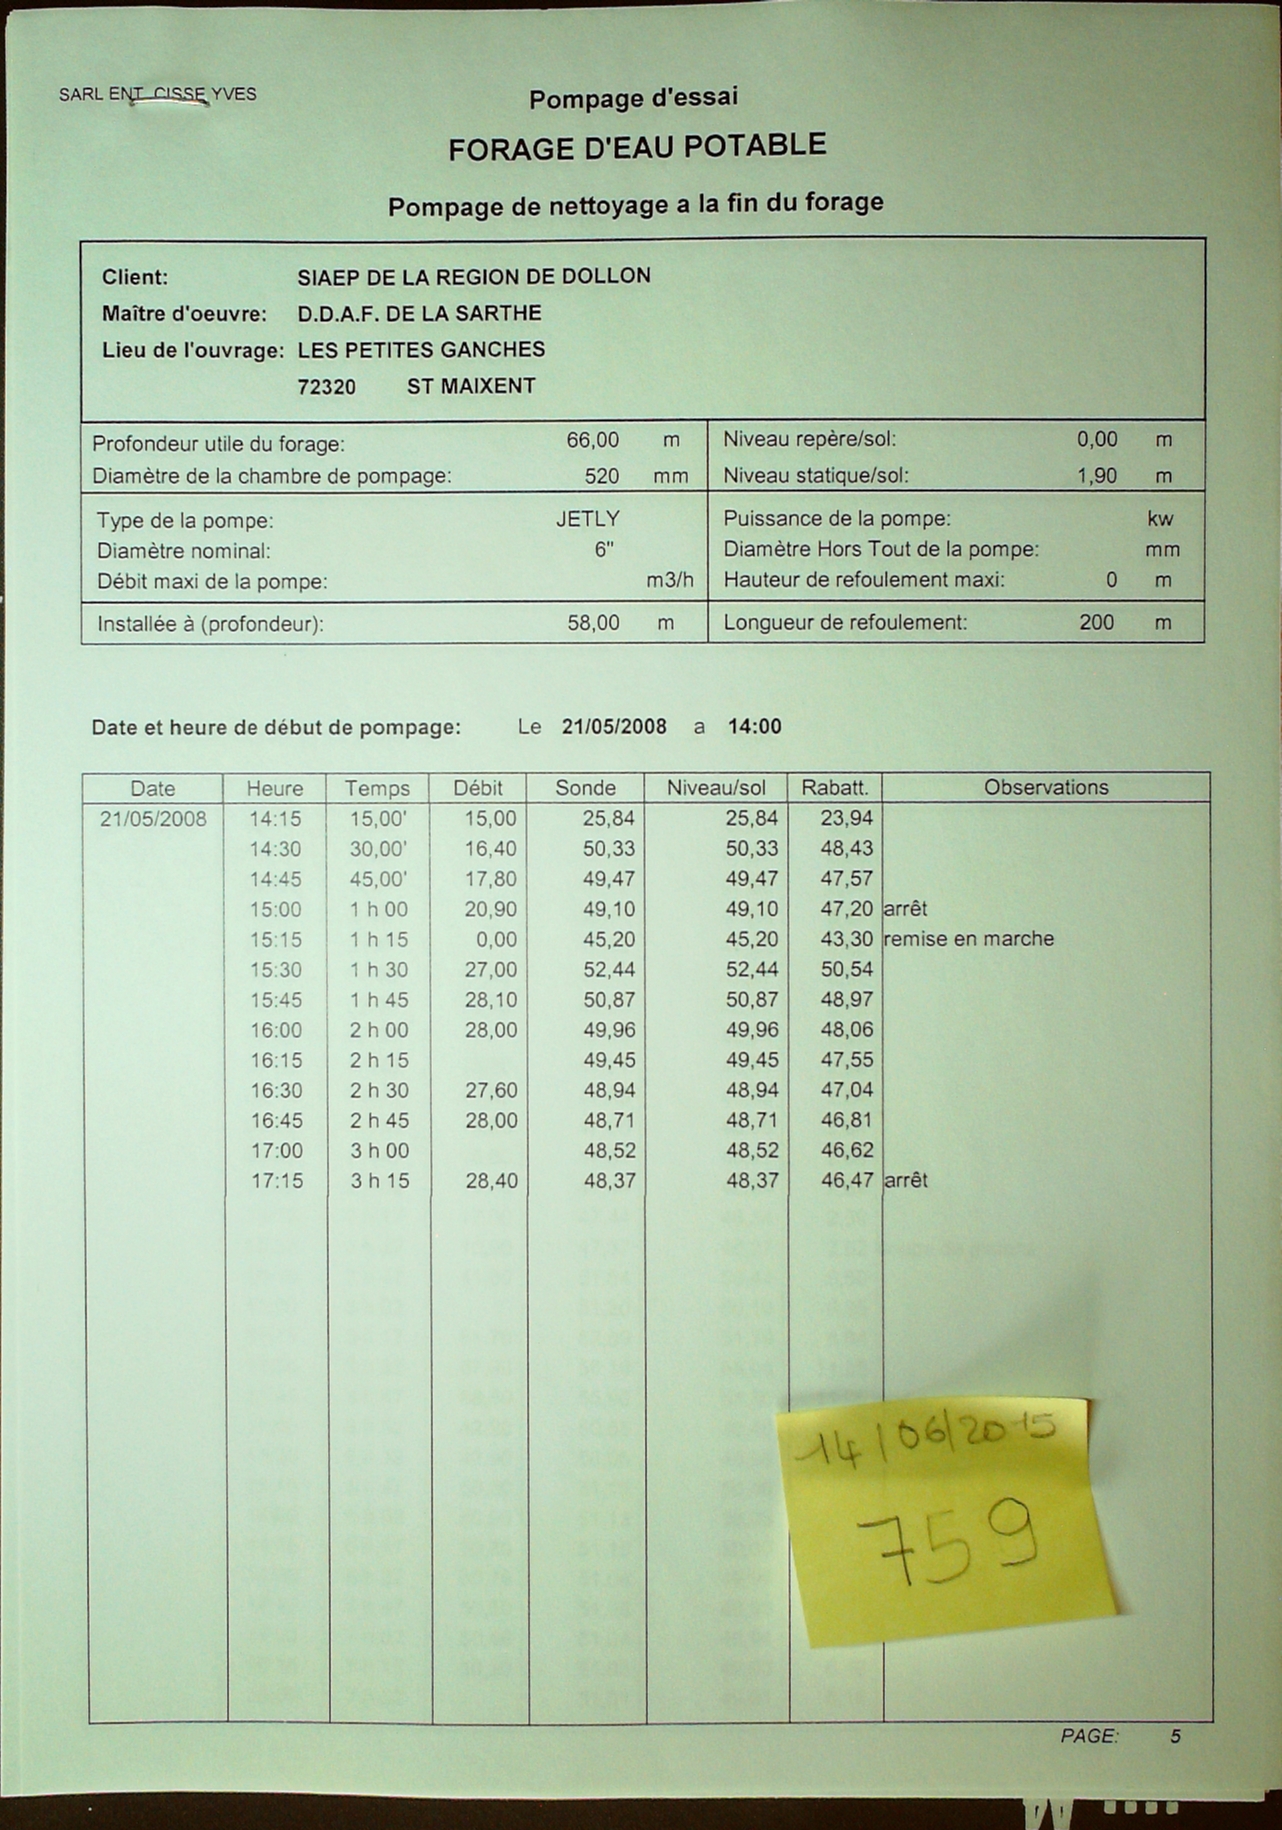 SARL ENT CISSE YVES
Pompage d'essai
FORAGE D'EAU POTABLE
Pompage de nettoyage a la fin du forage
Client: SIAEP DE LA REGION DE DOLLON
Maître d'oeuvre: D.D.A.F. DE LA SARTHE
Lieu de l'ouvrage: LES PETITES GANCHES
72320 ST MAIXENT
Profondeur utile du forage: 66,00 m Niveau repère/sol: 0,00 m
Diamètre de la chambre de pompage: 520 mm Niveau statique/sol: 1,90 m
Type de la pompe: JETLY Puissance de la pompe: kw
Diamètre nominal: 6" Diamètre Hors Tout de la pompe: mm
Débit maxi de la pompe: m3/h Hauteur de refoulement maxi: 0 m
Installée à (profondeur): 58,00 m Longueur de refoulement: 200 m
Date et heure de début de pompage: Le 21/05/2008 a 14:00
Date Heure Temps Débit Sonde Niveau/sol Rabatt. Observations
21/05/2008 14:15 15,00' 15,00 25,84 25,84 23,94
14:30 30,00' 16,40 50,33 50,33 48,43
14:45 45,00' 17,80 49,47 49,47 47,57
15:00 1 h 00 20,90 49,10 49,10 47,20 arrêt
15:15 1 h 15 0,00 45,20 45,20 43,30 remise en marche
15:30 1 h 30 27,00 52,44 52,44 50,54
15:45 1 h 45 28,10 50,87 50,87 48,97
16:00 2 h 00 28,00 49,96 49,96 48,06
16:15 2 h 15 49,45 49,45 47,55
16:30 2 h 30 27,60 48,94 48,94 47,04
16:45 2 h 45 28,00 48,71 48,71 46,81
17:00 3 h 00 48,52 48,52 46,62
17:15 3 h 15 28,40 48,37 48,37 46,47 arrêt
14/06/2015
759
PAGE: 5